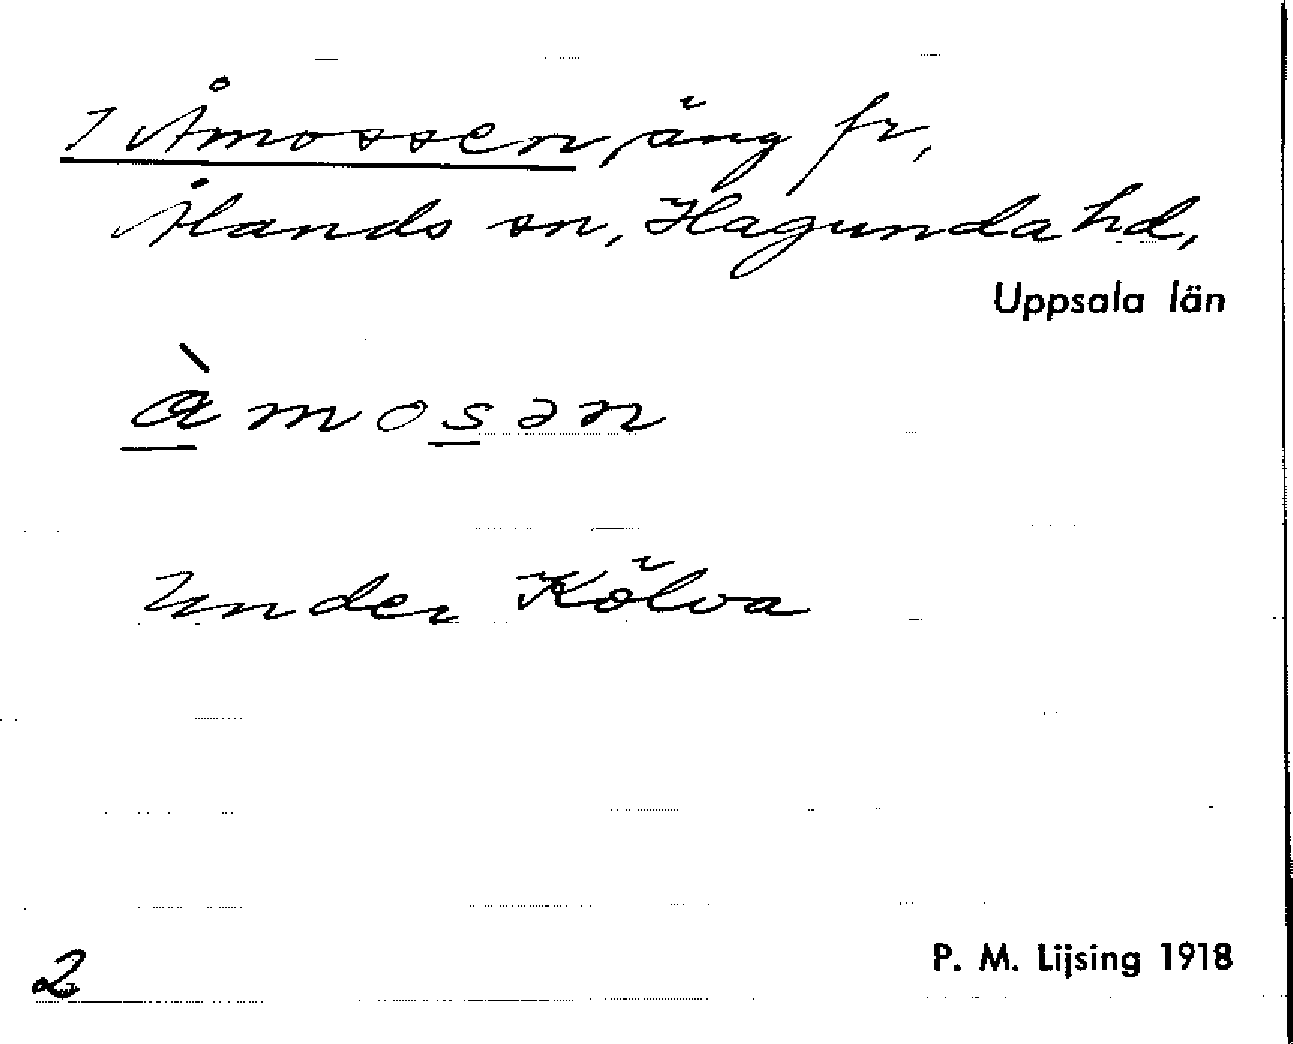 1 Åmossen, äng fr,
Ålands sn, Hagunda hd,
Uppsala län
ὰmosən
Under Kölva
2
P. M. Lijsing 1918